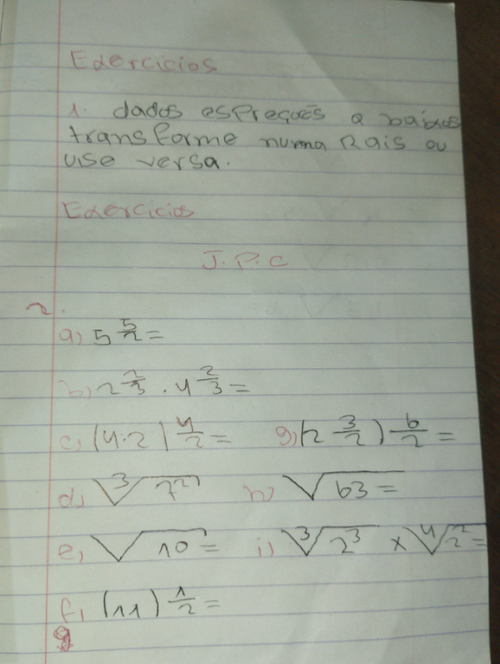 Exercicios
1. dados espreções a baixo
transforme numa Rais ou
vise versa.
Exercicios
J.P.C
2.
a) 5 5/2 =
b) 2 2/3 . 4 2/3 =
c) (4.2) 4/2 = g) (2 3/2) 6/2 =
d) ∛7² h) √63 =
e) √10 = i) ∛2³ × ∜2² =
f) (11) 1/2 =
g